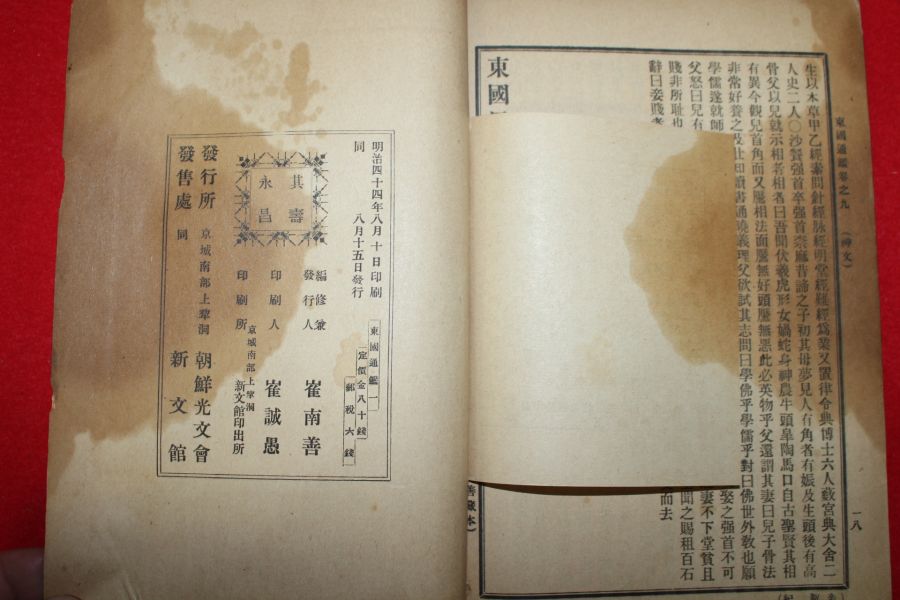 東國通鑑卷之九 (神文) 一八
生以本草甲乙經素問針經脉經明堂經難經爲業又置律令典博士六人藪宮典大舍二
人史二人〇沙飡强首卒强首柰麻昔諦之子初其母夢見人有角者有娠及生頭後有高
骨父以兒就示相者相者曰吾聞伏羲虎形女媧蛇身神農牛頭皐陶馬口自古聖賢其相
有異今觀兒首角而又黶相法面黶無好頭黶無惡此必英物乎父還謂其妻曰兒子骨法
非常好養之及壯知讀書通曉義理父欲試其志問曰學佛乎學儒乎對曰佛世外敎也願
學儒遂就師 娶之强首不可
父怒曰兒有 妻不下堂貧且
賤非所耻也 聞之賜租百石
辭曰妾賤者 而去
東國
善藏本)
明治四十四年八月十日印刷
同 八月十五日發行
東國通鑑一
定價金八十錢
郵稅六錢
其壽
永昌
編修兼
發行人 崔南善
印刷人 崔誠愚
京城南部上犂洞
印刷所 新文館印出所
發行所 京城南部上犂洞 朝鮮光文會
發售處 同 新文館